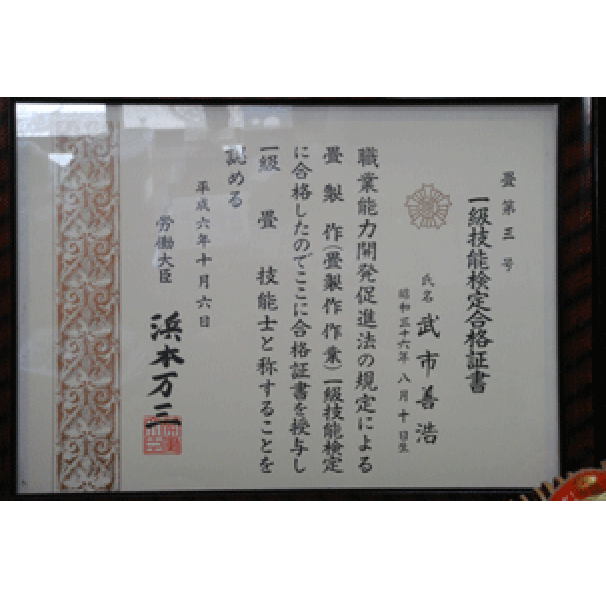 畳第三号
一級技能検定合格証書
氏名 武市善浩
昭和三十六年八月十日生
職業能力開発促進法の規定による
畳製作(畳製作作業)一級技能検定
に合格したのでここに合格証書を授与し
一級 畳 技能士と称することを
認める
平成六年十月六日
労働大臣 浜本万三